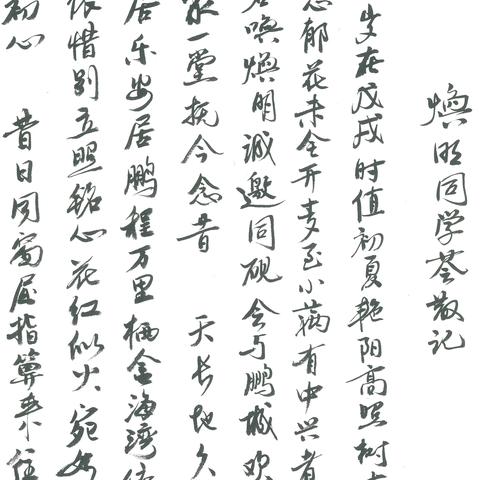 焕明同学荟散记
岁在戊戌时值初夏艳阳高照树
郁花未全开麦至小满有中兴者
唤焕明诚邀同砚会与鹏城欢
一堂抚今念昔 天长地久
居乐安居鹏程万里栖含海湾
惜别立照铭心花红似火宛如
初心 昔日同窗屈指算来往